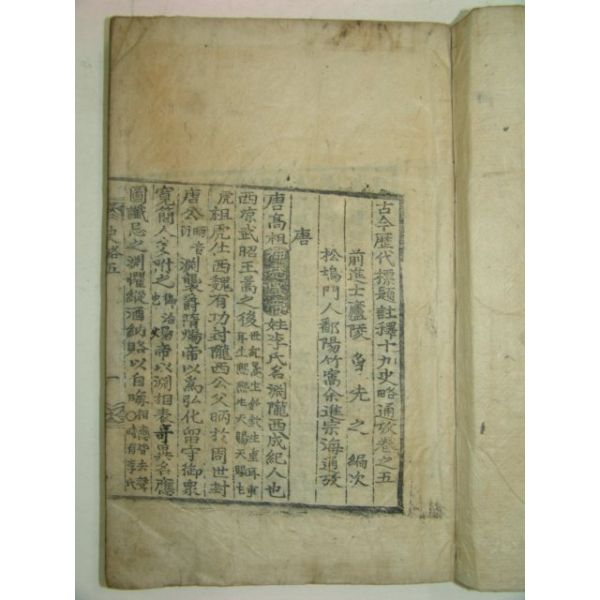 古今歷代標題註釋十九史略通攷卷之五
前進士廬陵曾先之編次
松塢門人鄱陽竹窩余進宗海通攷
唐
唐高祖神堯皇帝姓李氏名淵隴西成紀人也
西凉武昭王暠之後
虎祖虎仕西魏有功封隴西公父昞於周世封
唐公淵襲爵隋煬帝以爲弘化留守御衆
寬簡人多附之煬帝以淵相表奇異名應
圖讖忌之淵懼縱酒納賂以自晦
史略五